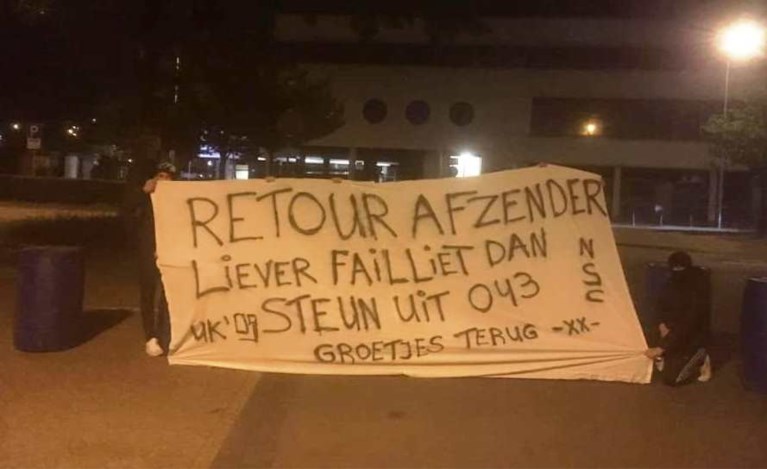 RETOUR AFZENDER
LIEVER FAILLIET DAN
STEUN UIT 043
UK'09
GROETJES TERUG -XX-
NSC
P